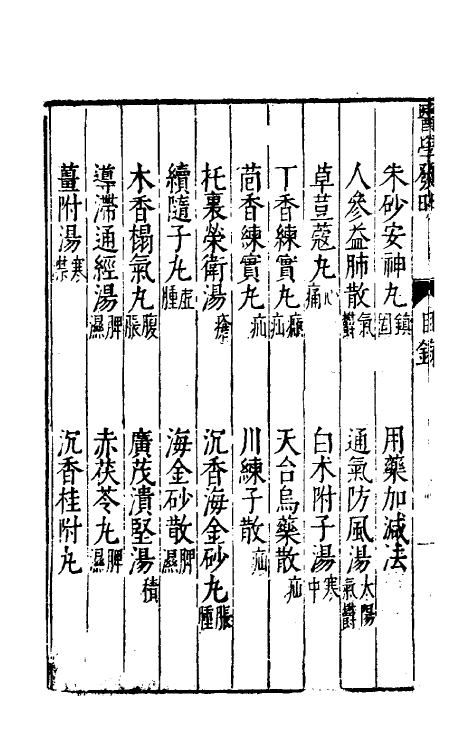 醫學發明
目錄
一
朱砂安神丸 鎮固 用藥加減法
人參益肺散 氣欝 通氣防風湯 太陽氣欝
草荳蔻丸 心痛 白术附子湯 寒中
丁香練實丸 㿗疝 天台烏藥散 疝
茴香練實丸 疝 川練子散 疝
托裏榮衛湯 瘡 沉香海金砂丸 脹腫
續隨子丸 虛腫 海金砂散 脾濕
木香楬氣丸 腹脹 廣茂潰堅湯 積
導滯通經湯 脾濕 赤茯苓丸 脾濕
薑附湯 寒禁 沉香桂附丸